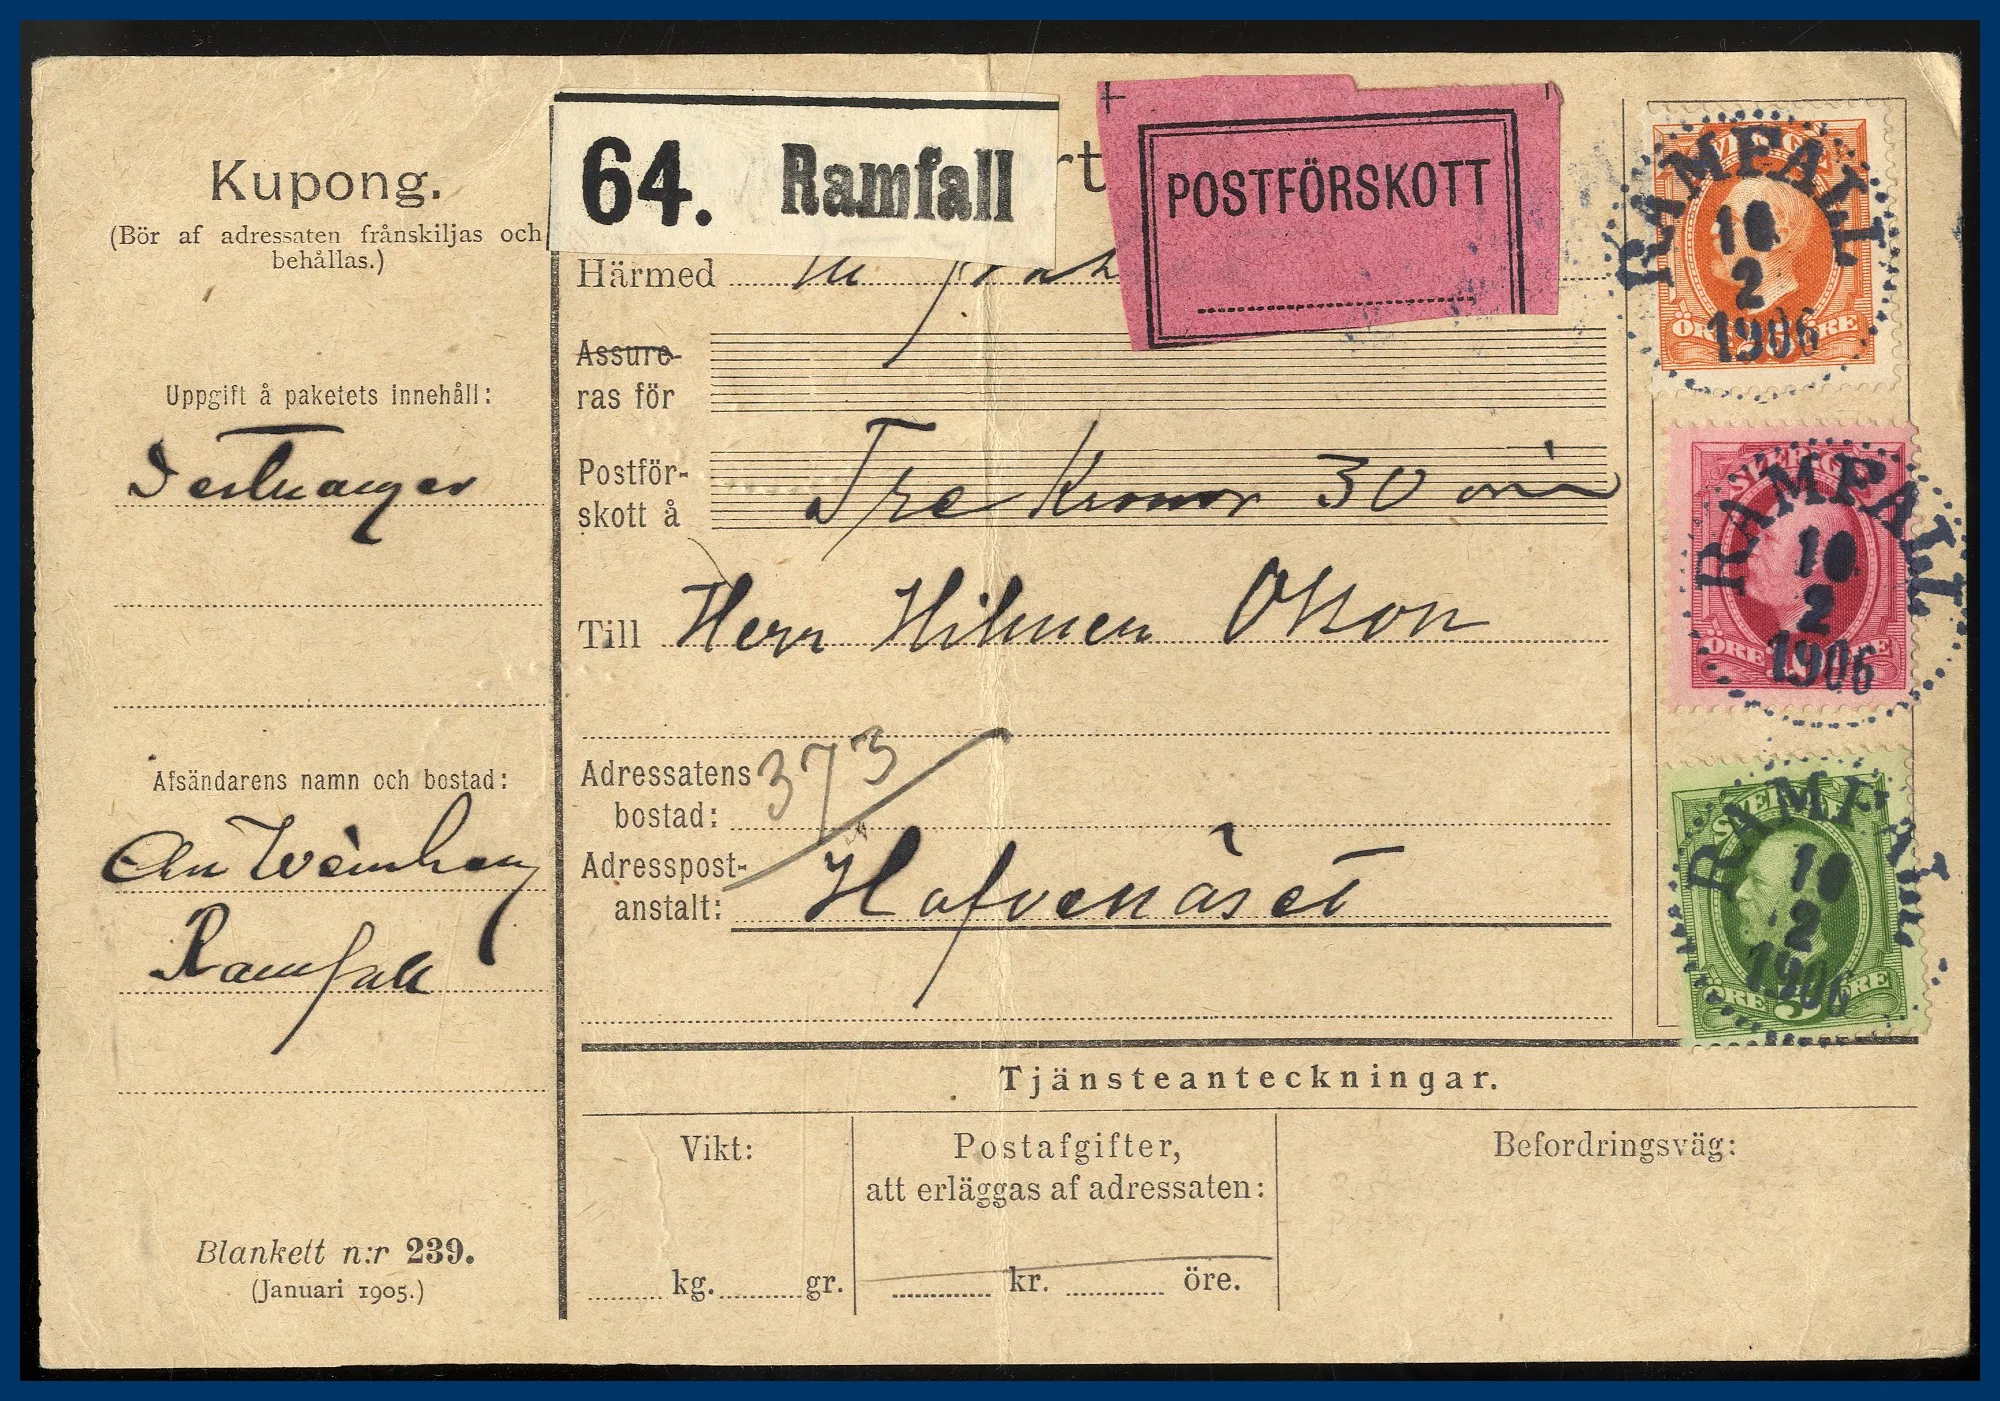 Kupong.
(Bör af adressaten frånskiljas och
behållas.)
Uppgift å paketets innehåll:
Afsändarens namn och bostad:
Ramfall
Blankett n:r 239.
(Januari 1905.)
64. Ramfall
rt
POSTFÖRSKOTT
Härmed
Assure-
ras för
Postför-
skott å
Tre Kronor 30 öre
Till Herr Hilmer Olsson
Adressatens
bostad:
373
Adresspost-
anstalt:
Hafvenäset
Tjänsteanteckningar.
Vikt:
kg. gr.
Postafgifter,
att erläggas af adressaten:
kr. öre.
Befordringsväg:
SVERIGE
RAMFALL
10
2
1906
ÖRE 25 ÖRE
SVERIGE
RAMFALL
10
2
1906
ÖRE 10 ÖRE
SVERIGE
RAMFALL
10
2
1906
ÖRE 5 ÖRE